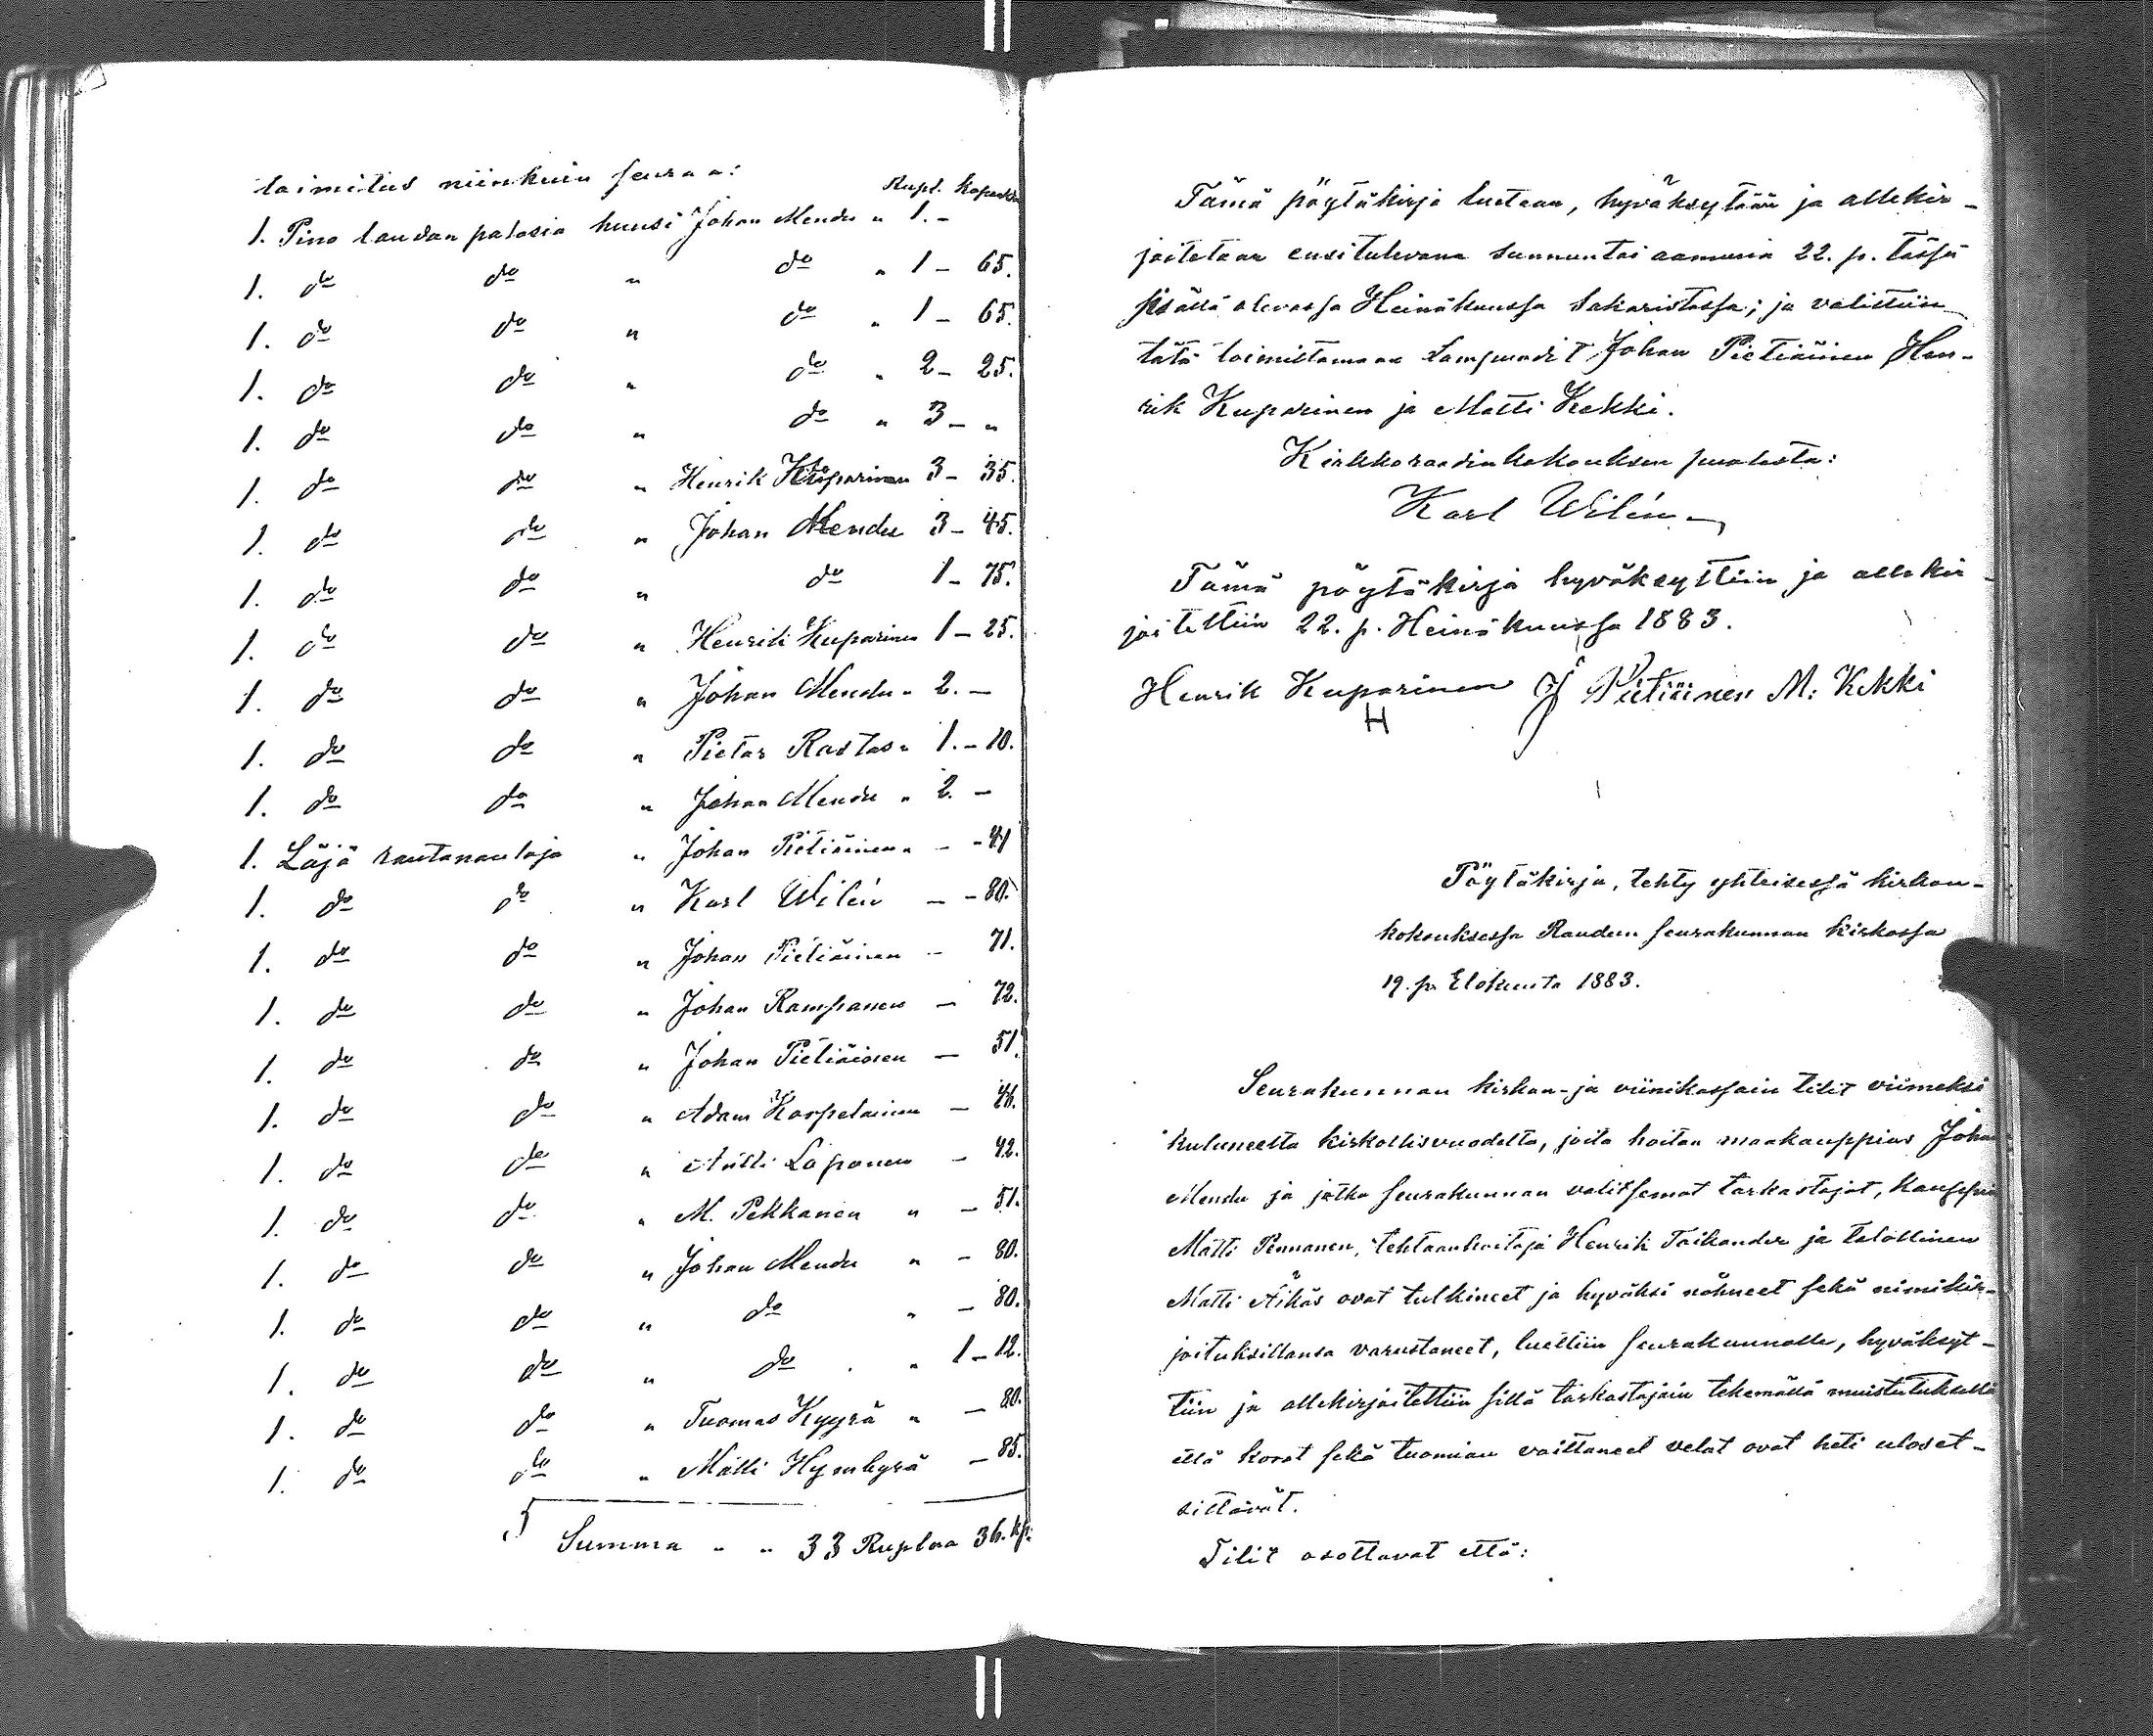 toimitus niinkuin seuraa:
Rupl. Kopeekka
1. Pino laudan palosia huusi Johan Mendu " 1. –
1. do do " do " 1 – 65.
1. do do " do " 1 – 65.
1. do do " do " 2 – 25.
1. do do " do " 3 – "
1. do do " Henrik Kuparinen 3 – 35.
1. do do " Johan Mendu 3 – 45.
1. do do " do 1 – 75.
1. do do " Henrik Kuparinen 1 – 25.
1. do do " Johan Mendu " 2. –
1. do do " Pietar Rastas " 1. – 10.
1. do do " Johan Mendu " 2. –
1. Läjä rautanauloja " Johan Pietiäinen " – – 41
1. do do " Karl Wilén – – 80.
1. do do " Johan Pietiäinen – 71.
1. do do " Johan Rampanen – 72.
1. do do " Johan Pietiäinen – 51.
1. do do " Adam Karpelainen – 46.
1. do do " Antti Loponen – 42.
1. do do " M. Pekkanen " – 51.
1. do do " Johan Mendu " – 80.
1. do do " do " – 80.
1. do do " do " 1 – 12.
1. do do " Tuomas Kyyrä " – 80.
1. do do " Matti Hymhyrä – 85.
Summa " " 33 Ruplaa 36. kp.
Tämä pöytäkirja luetaan, hyväksytään ja allekir-
joitetaan ensitulevana sunnuntai aamuna 22. p. tässä
sisällä olevassa Heinäkuussa Sakaristossa; ja valittiin
tätä toimittamaan Lampuodit Johan Pietiäinen Hen-
rik Kuparinen ja Matti Kekki.
Kirkkoraadinkokouksen puolesta:
Karl Wilén
Tämä pöytäkirja hyväksyttiin ja allekir-
joitettiin 22. p. Heinäkuussa 1883.
Henrik Kuparinen J Pietiäinen M: Kekki
H
Pöytäkirja, tehty yhteisessä kirkon-
kokouksessa Raudun seurakunnan kirkossa
19. p. Elokuuta 1883.
Seurakunnan kirkon- ja viinikassain tilit viimeksi
kuluneelta kirkollisvuodelta, joita hoitaa maakauppias Johan
Mendu ja jotka seurakunnan valitsemat tarkastajat, kauppias
Matti Pennanen, tehtaanhoitaja Henrik Taikander ja talollinen
Matti Äikäs ovat tutkineet ja hyväksi nähneet sekä nimikir-
joituksillansa varustaneet, luettiin seurakunnalle, hyväksyt-
tiin ja allekirjoitettiin sillä tarkastajain tekemällä muistutuksella
että korot sekä tuomion voittaneet velat ovat heti uloset-
sittävät.
Tilit osottavat että: